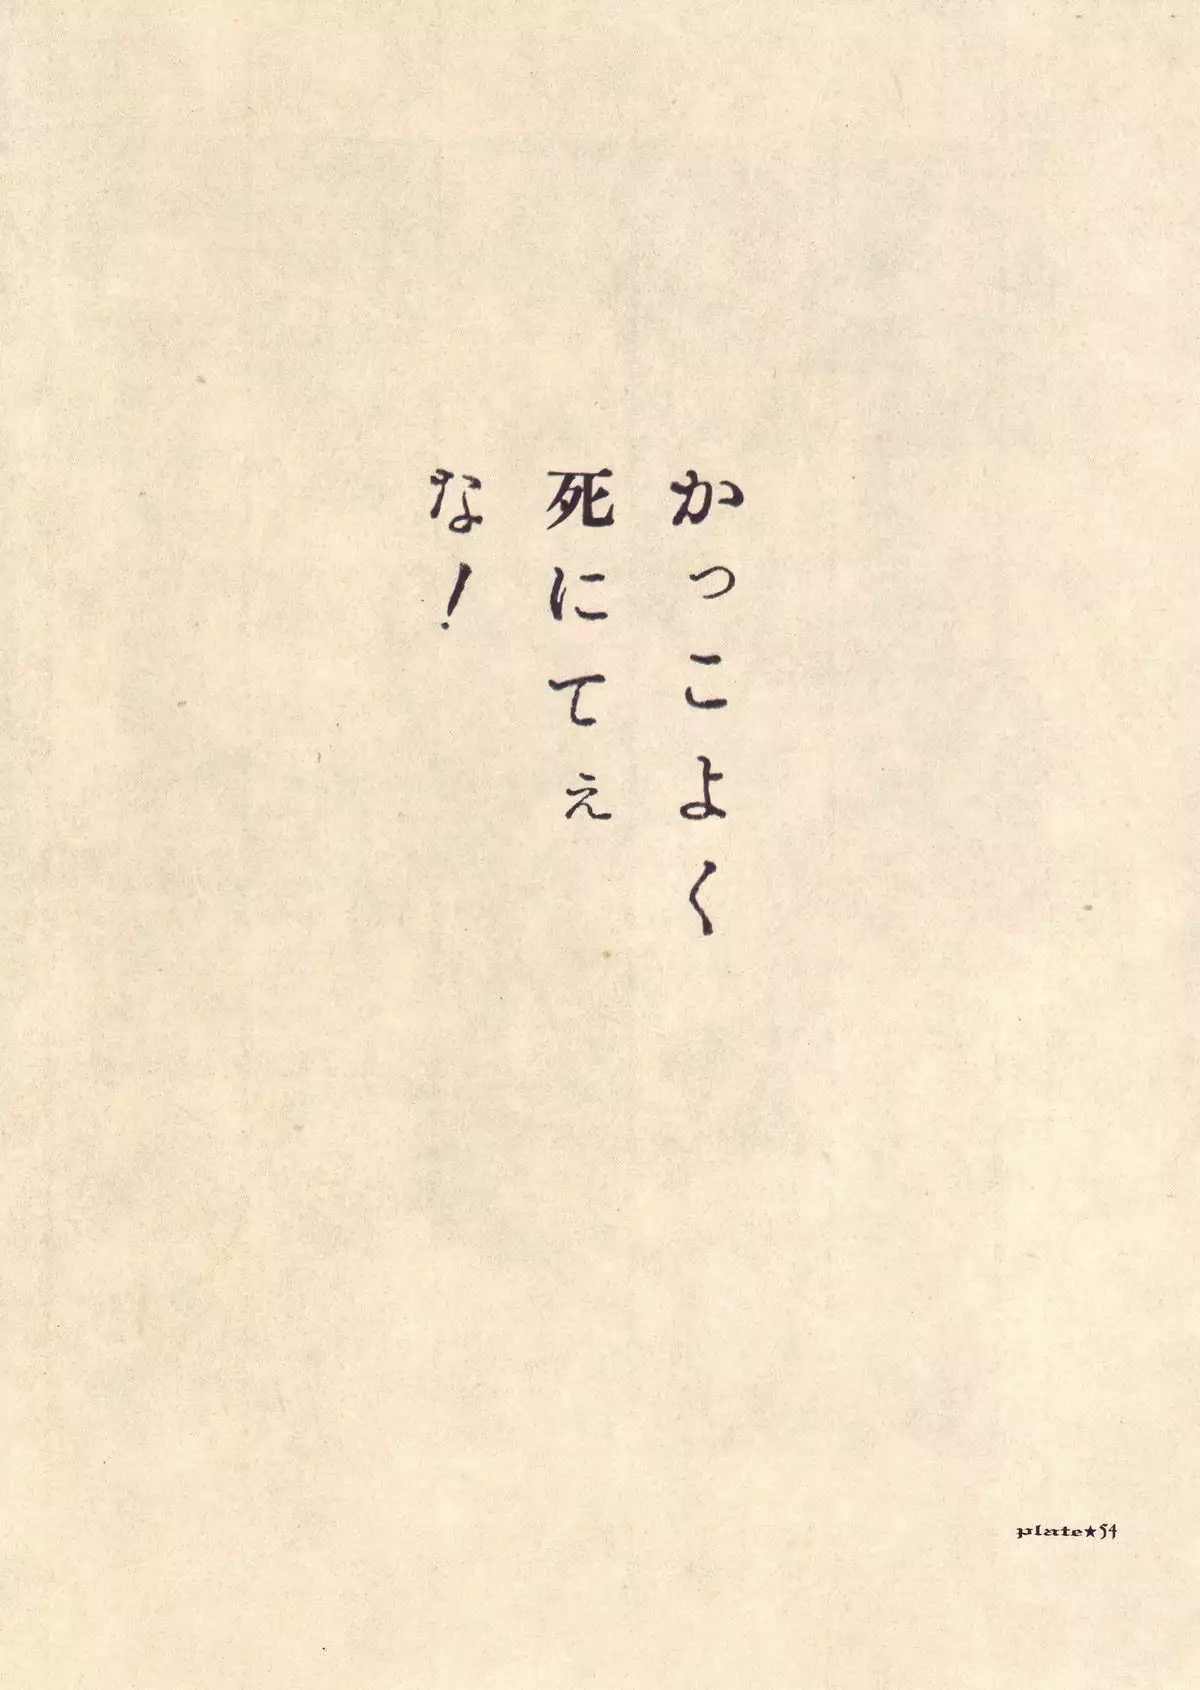 かっこよく
死にてぇ
な!
plate★54